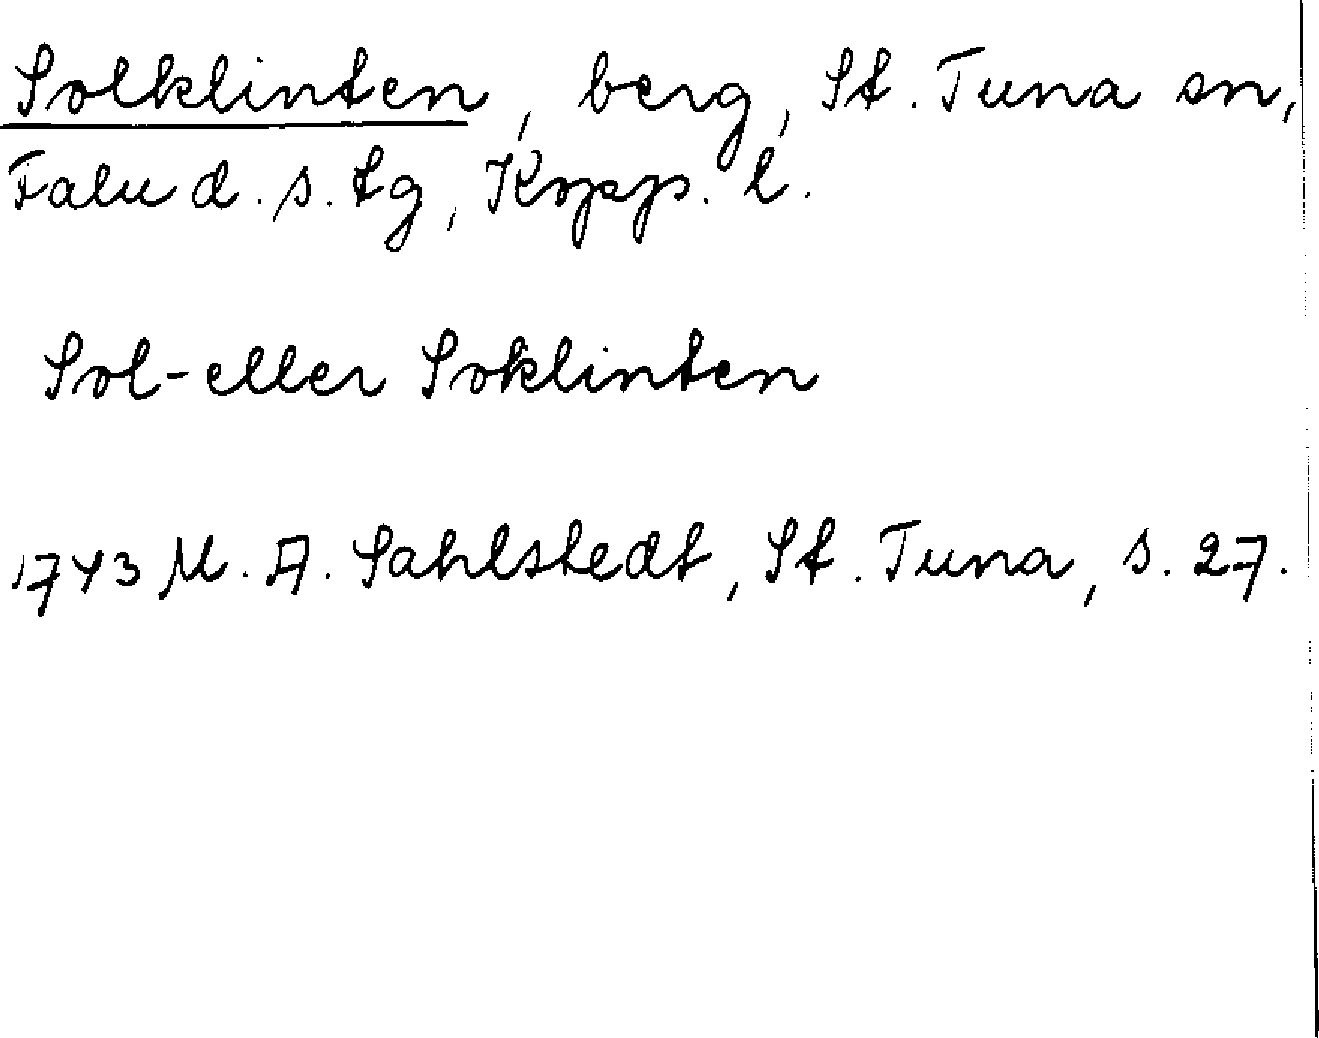 Solklinten, berg, St. Tuna sn,
Falu d. s. tg, Kopp. l.
Sol- eller Soklinten
1743 M. A. Sahlstedt, St. Tuna, s. 27.